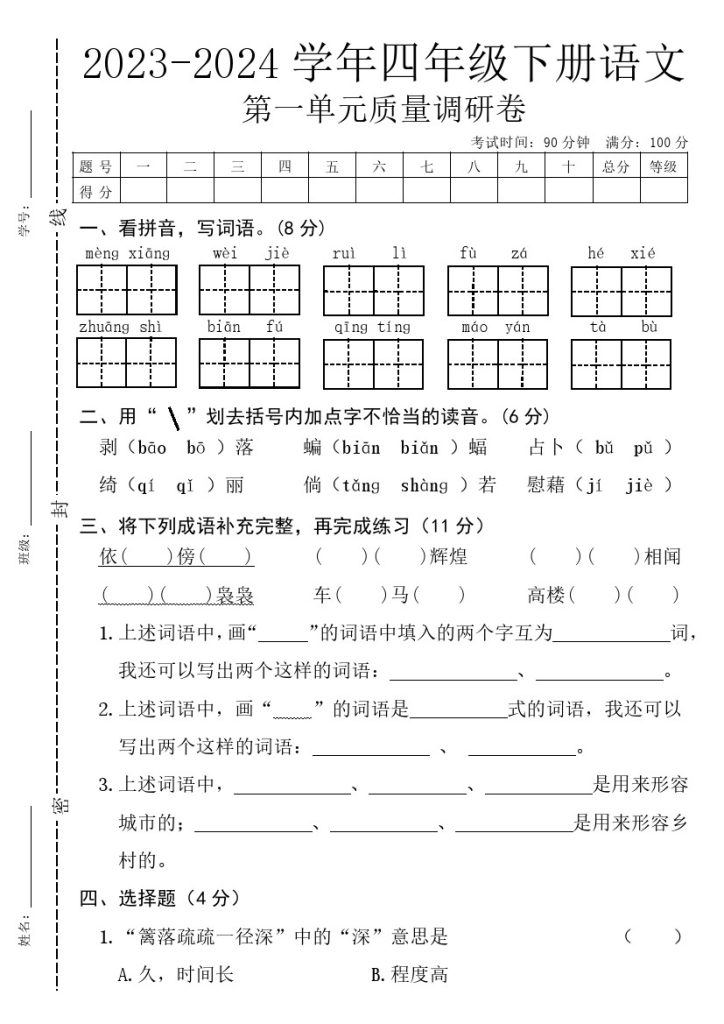 2023-2024 学年四年级下册语文
第一单元质量调研卷
考试时间：90 分钟 满分：100 分
题 号 一 二 三 四 五 六 七 八 九 十 总分 等级
得 分
一、看拼音，写词语。(8 分)
mèng xiāng wèi jiè ruì lì fù zá hé xié
zhuāng shì biān fú qīng tíng máo yán tà bù
二、用“ \ ”划去括号内加点字不恰当的读音。(6 分)
剥（bāo bō ）落 蝙（biān biǎn ）蝠 占卜（ bǔ pǔ ）
绮（qí qǐ ）丽 倘（tǎng shàng ）若 慰藉（jí jiè ）
三、将下列成语补充完整，再完成练习（11 分）
依( )傍( ) ( )( )辉煌 ( )( )相闻
( )( )袅袅 车( )马( ) 高楼( )( )
1. 上述词语中，画“_____”的词语中填入的两个字互为____________词，
我还可以写出两个这样的词语：_____________、_____________。
2. 上述词语中，画“﹏﹏”的词语是__________式的词语，我还可以
写出两个这样的词语：____________ 、 ___________。
3. 上述词语中，____________、__________、___________是用来形容
城市的；____________、___________、____________是用来形容乡
村的。
四、选择题（4 分）
1. “篱落疏疏一径深”中的“深”意思是 （ ）
A. 久，时间长 B. 程度高
学号：
班级：
姓名：
线
封
密